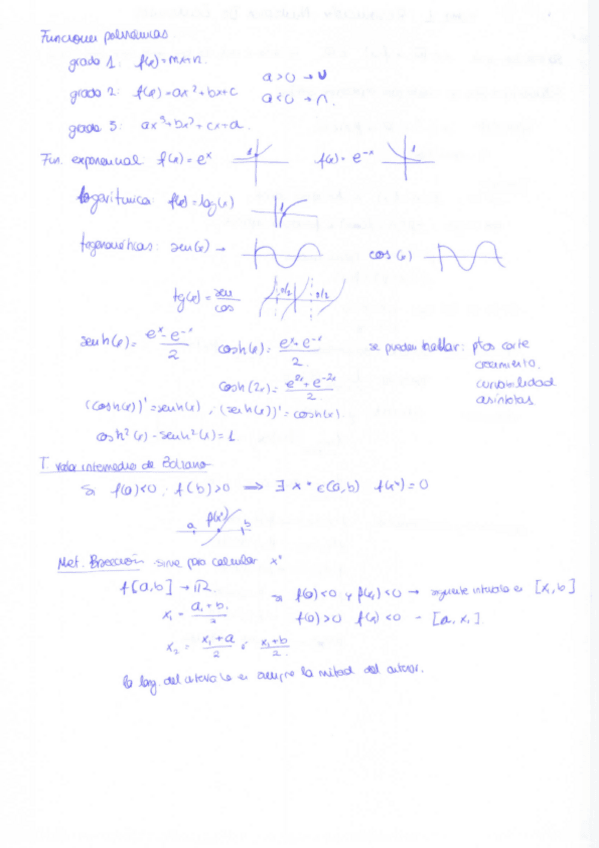 Funciones polinómicas
grado 1: f(x)=mx+n.
grado 2: f(x)=ax²+bx+c a>0 → ∪
a<0 → ∩.
grado 3: ax³+bx²+cx+d.
Fun. exponencial f(x)=eˣ f(x)=e⁻ˣ
logarítmica f(x)=log(x)
trigonométricas: sen(x) → cos(x)
tg(x)=sen/cos
senh(x)=(eˣ-e⁻ˣ)/2 cosh(x)=(eˣ+e⁻ˣ)/2 se pueden hallar: ptos corte
crecimiento,
curvabilidad
asíntotas
cosh(2x)=(e²ˣ+e⁻²ˣ)/2
(cosh(x))'=senh(x), (senh(x))'=cosh(x)
cosh²(x)-senh²(x)=1
T. valor intermedio de Bolzano
Si f(a)<0, f(b)>0 ⟹ ∃ x* ∈(a,b) f(x*)=0
a f(x*) b
Met. Bisección sirve para calcular x*
f[a,b]→ℝ si f(a)<0 y f(x₁)<0 → siguiente intervalo es [x₁,b]
x₁=(a+b)/2 f(a)>0 f(x₁)<0 - [a,x₁]
x₂=(x₁+a)/2 ó (x₁+b)/2
la long. del intervalo es siempre la mitad del anterior.